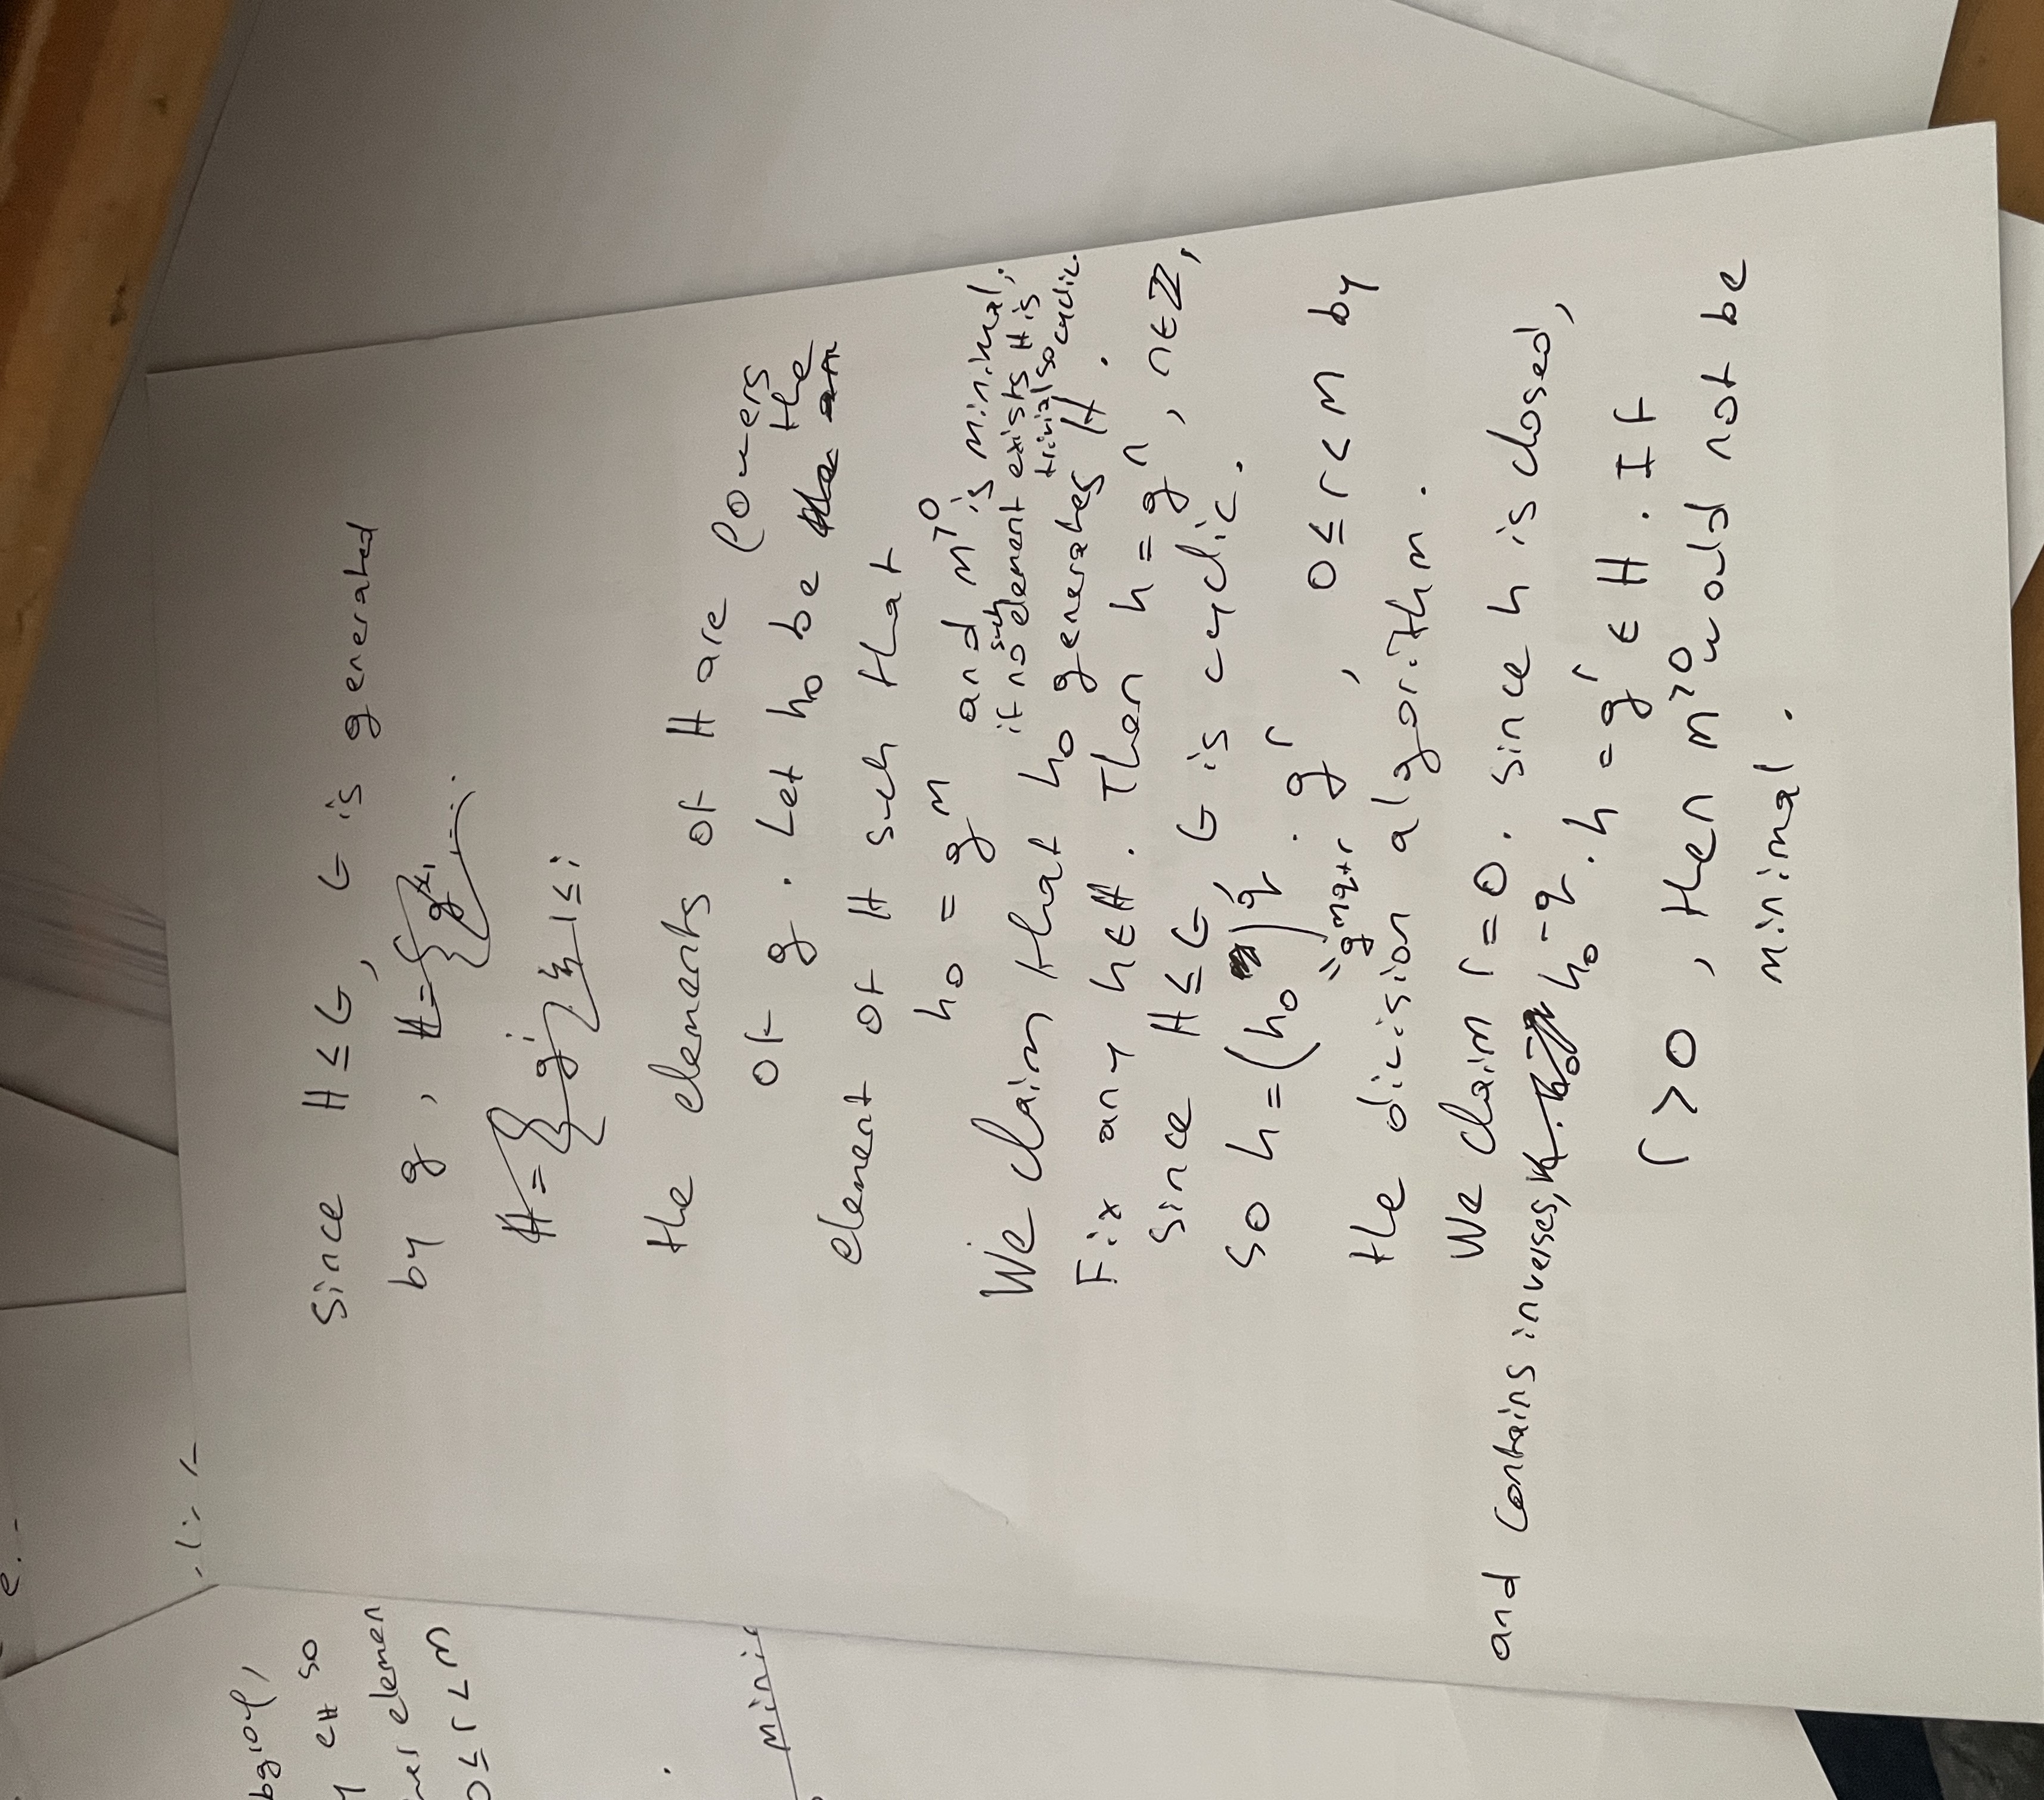 e.
bgroup,
y eH so
her elemen
0 ≤ r < m
minim
Since H ≤ G, G is generated
by g, H = { g^x1, ....
H = { g^i } 1 ≤ i
the elements of H are powers
of g. Let h₀ be the an the
element of H such that
h₀ = g^m and m>0 is minimal,
if no such element exists H is
trivial so cyclic.
We claim that h₀ generates H.
Fix any h∈H. Then h = g^n, n∈ℤ,
since H ≤ G, G is cyclic.
So h = (h₀)^q · g^r, 0 ≤ r < m by
= g^mq+r
the division algorithm.
We claim r = 0. Since h is closed,
and contains inverses, h₀^-q · h = g^r ∈ H. If
r > 0, then m>0 would not be
minimal.